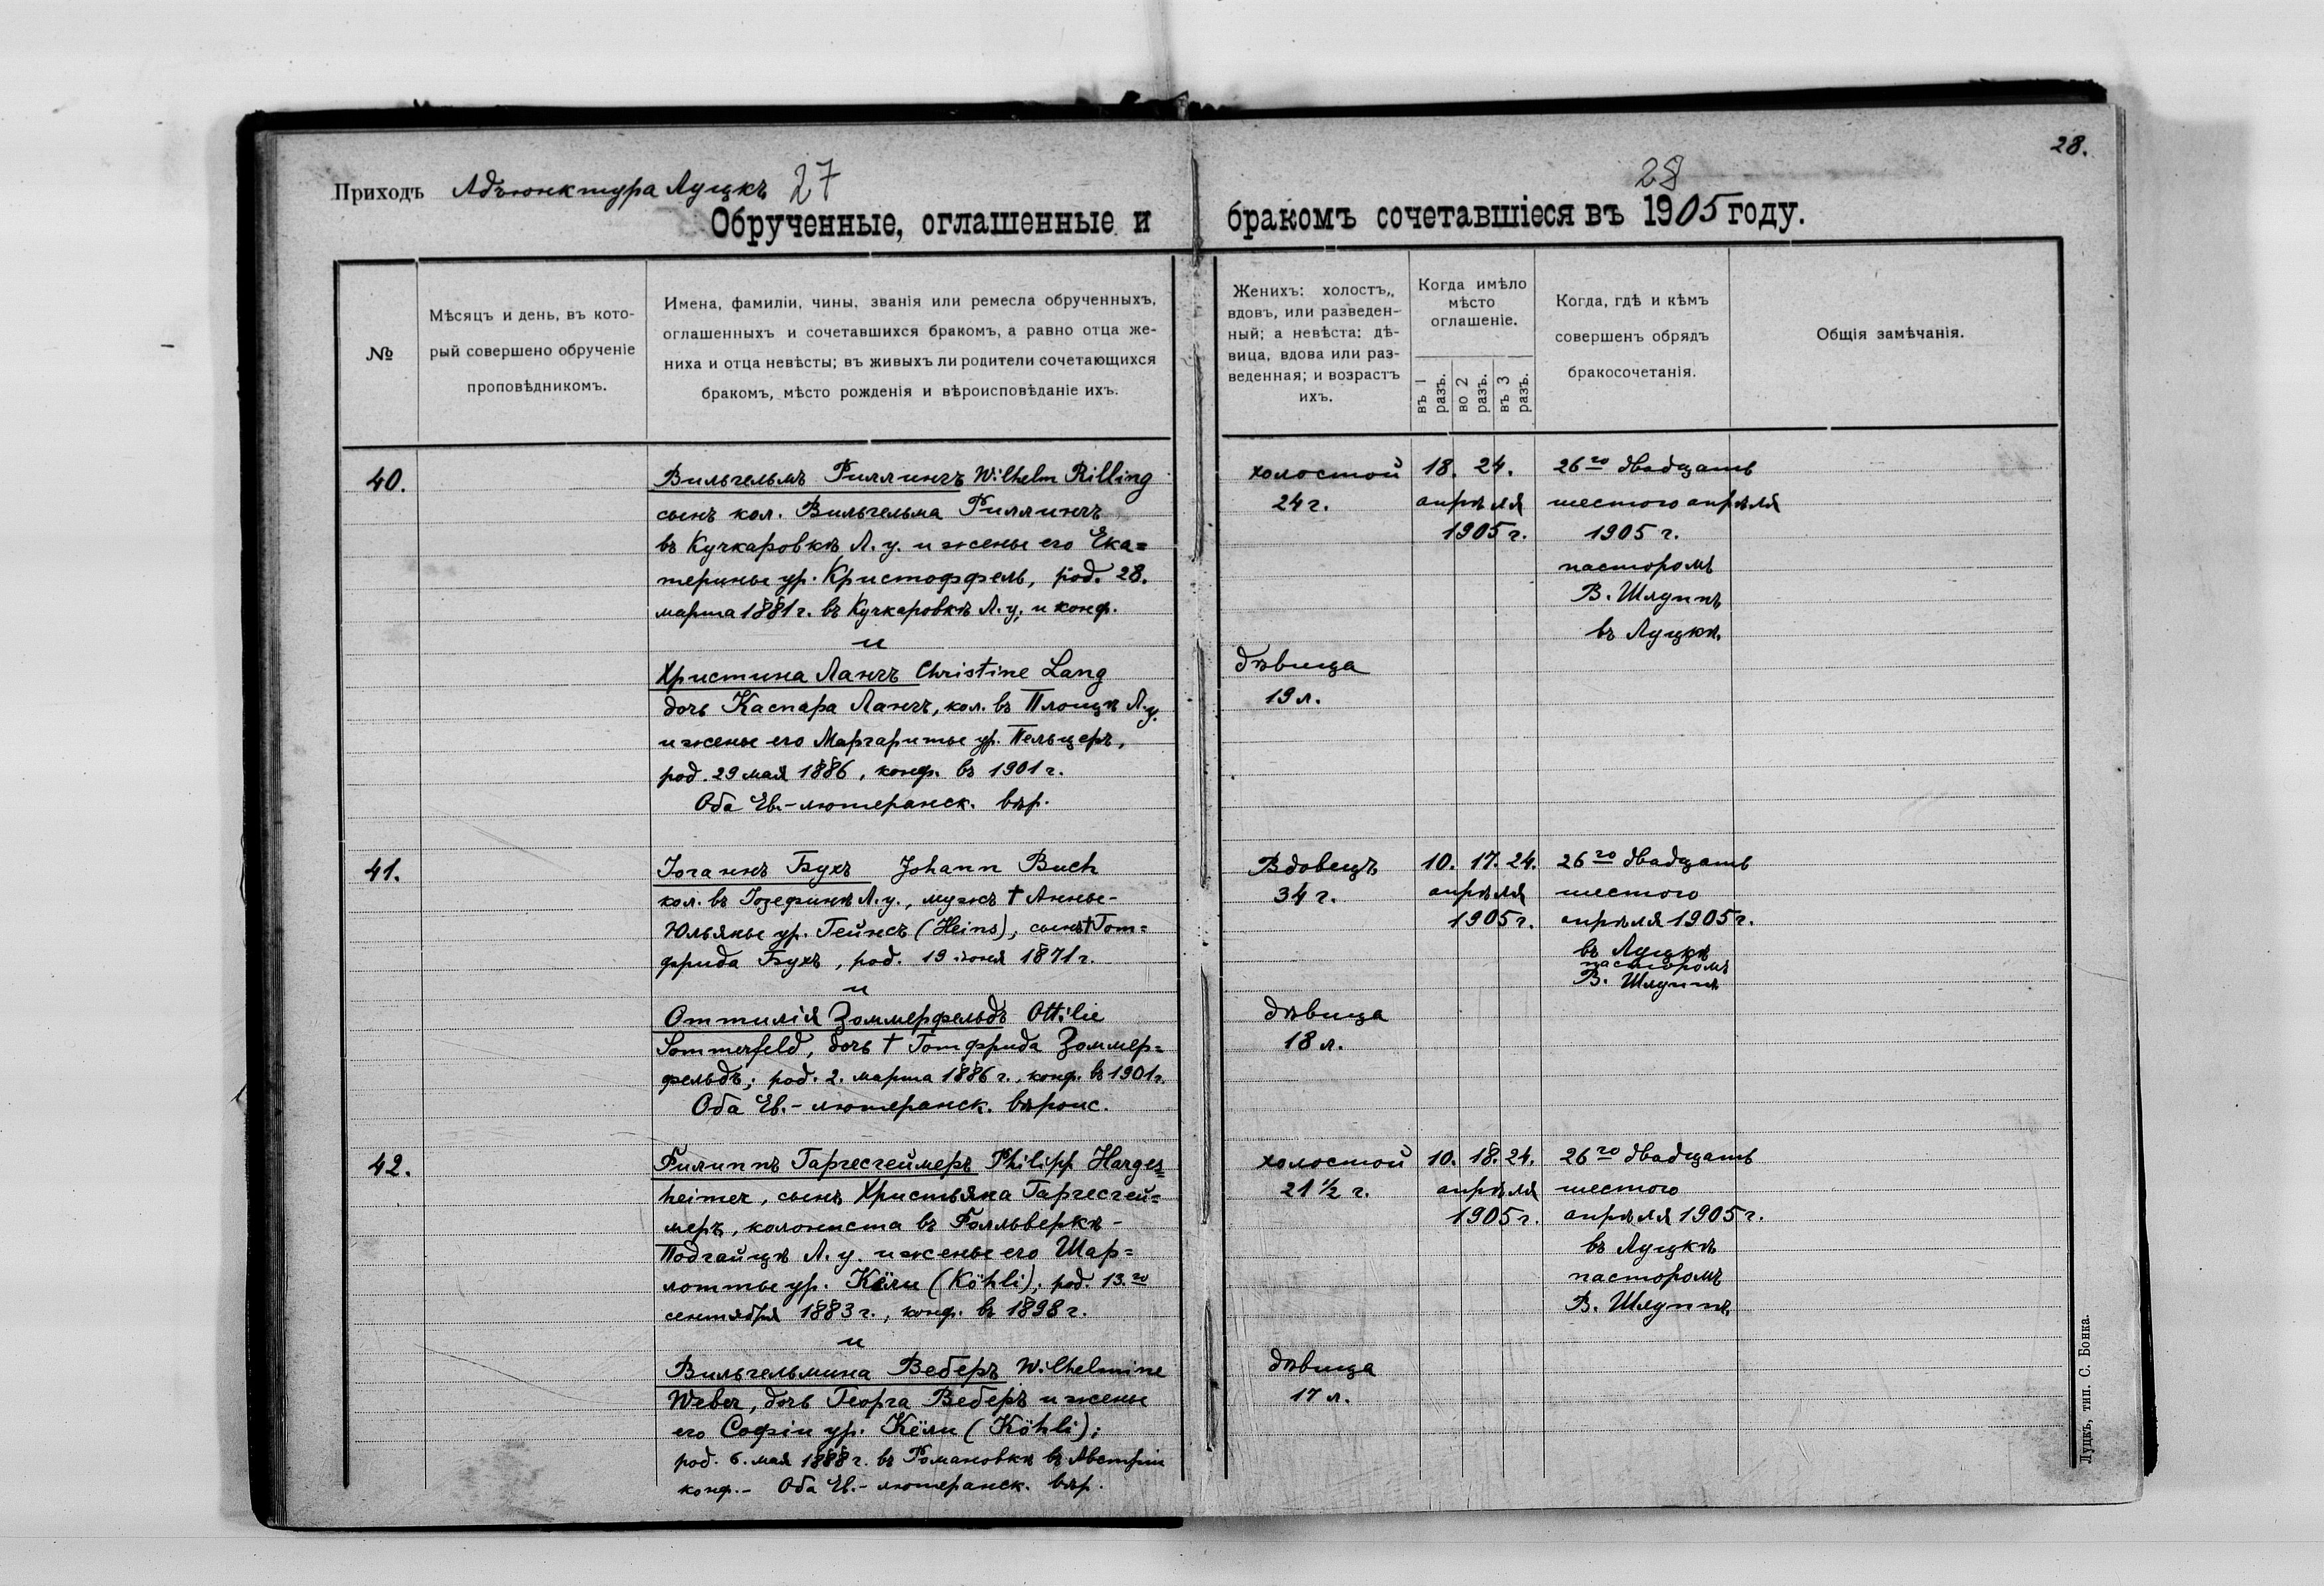 28.
Приходъ Адъюнктура Луцкъ 27
28
Обрученные, оглашенные и бракомъ сочетавшіеся въ 1905 году.
№
Мѣсяцъ и день, въ кото-
рый совершено обрученіе
проповѣдникомъ.
Имена, фамиліи, чины, званія или ремесла обрученныхъ,
оглашенныхъ и сочетавшихся бракомъ, а равно отца же-
ниха и отца невѣсты; въ живыхъ ли родители сочетающихся
бракомъ, мѣсто рожденія и вѣроисповѣданіе ихъ.
Женихъ: холостъ,
вдовъ, или разведен-
ный; а невѣста: дѣ-
вица, вдова или раз-
веденная; и возрастъ
ихъ.
Когда имѣло
мѣсто
оглашеніе.
въ 1 разъ.
во 2 разъ.
въ 3 разъ.
Когда, гдѣ и кѣмъ
совершенъ обрядъ
бракосочетанія.
Общія замѣчанія.
40.
Вильгельмъ Риллингъ Wilhelm Rilling
сынъ кол. Вильгельма Риллингъ
въ Кучкаровкѣ Л. у. и жены его Ека=
терины ур. Кристоффель, род. 28.
марта 1881 г. въ Кучкаровкѣ Л. у. и конф.
и
Христина Лангъ Christine Lang
дочь Каспара Лангъ, кол. въ Площѣ Л.у.
и жены его Маргариты ур. Пельцеръ,
род. 29 мая 1886, конф. въ 1901 г.
Оба Ев.-лютеранск. вѣр.
холостой
24 г.
дѣвица
19 л.
18. 24.
апрѣля
1905 г.
26го двадцать
шестого апрѣля
1905 г.
пасторомъ
В. Шлуппъ
въ Луцкѣ.
41.
Іоганнъ Бухъ Johann Buch
кол. въ Іозефинѣ Л. у., мужъ † Анны-
Юльяны ур. Гейнсъ (Heins), сынъ † Гот=
фрида Бухъ, род. 19 іюня 1871 г.
и
Оттилія Зоммерфельдъ Ottilie
Sommerfeld, дочь † Готфрида Зоммер=
фельдъ; род. 2. марта 1886 г., конф. въ 1901 г.
Оба Ев.-лютеранск. вѣроис.
Вдовецъ
34 г.
дѣвица
18 л.
10. 17. 24.
апрѣля
1905 г.
26го двадцать
шестого
апрѣля 1905 г.
въ Луцкѣ
пасторомъ
В. Шлуппъ
42.
Филиппъ Гаргесгеймеръ Philipp Harges=
heimer, сынъ Христьяна Гаргесгей=
меръ, колониста въ Фалльверкѣ-
Подгайцѣ Л. у. и жены его Шар=
лотты ур. Кёли (Köhli); род. 13.го
сентября 1883 г., конф. въ 1898 г.
и
Вильгельмина Веберъ Wilhelmine
Weber, дочь Георга Веберъ и жены
его Софіи ур. Кёли (Köhli);
род. 6. мая 1888 г. въ Романовкѣ въ Австріи
конф. - Оба Ев.-лютеранск. вѣр.
холостой
21 1/2 г.
дѣвица
17 л.
10. 18. 24.
апрѣля
1905 г.
26го двадцать
шестого
апрѣля 1905 г.
въ Луцкѣ
пасторомъ
В. Шлуппъ.
Луцкъ, тип. С. Бонка.